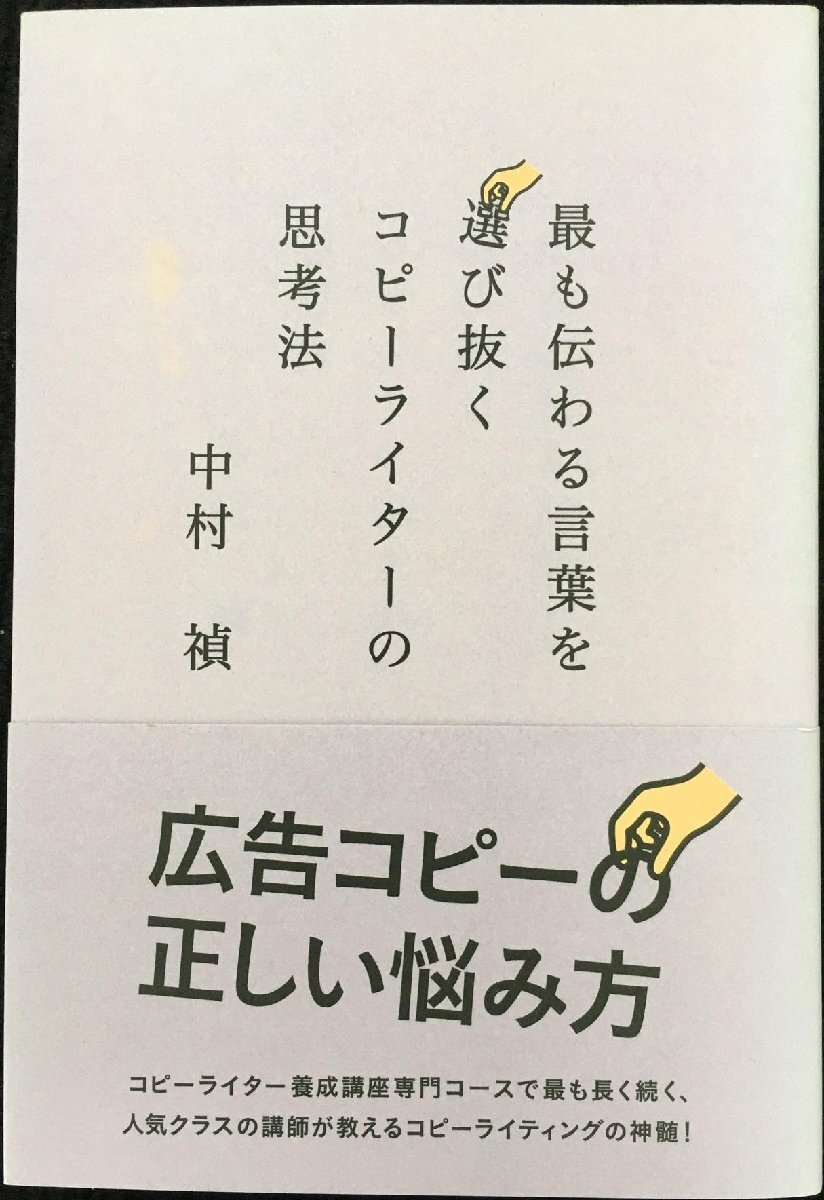 最も伝わる言葉を
選び抜く
コピーライターの
思考法
中村 禎
広告コピーの
正しい悩み方
コピーライター養成講座専門コースで最も長く続く、
人気クラスの講師が教えるコピーライティングの神髄！